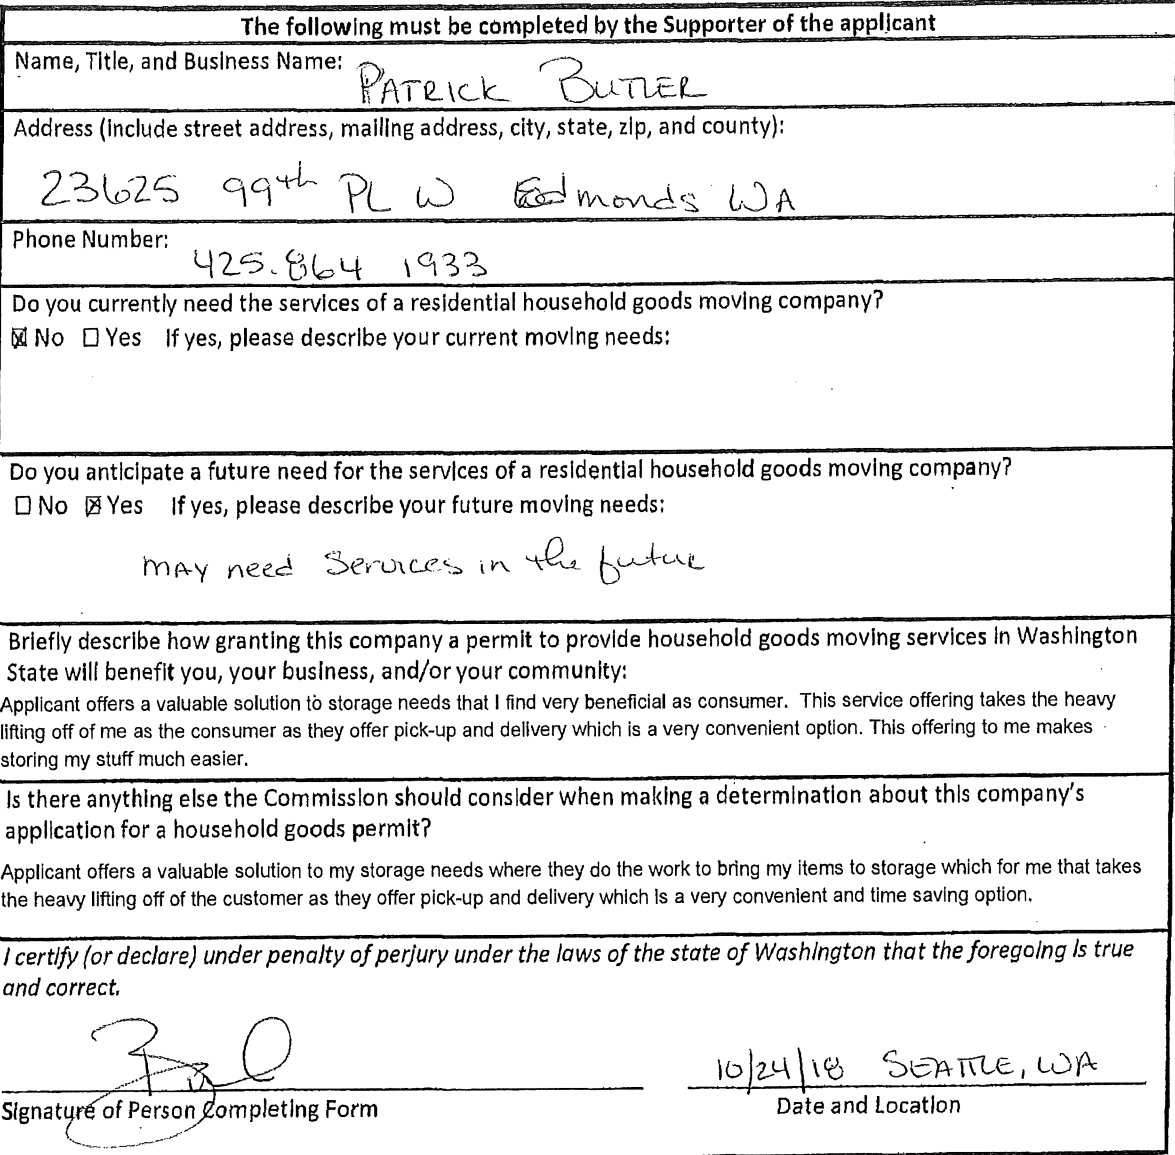 The following must be completed by the Supporter of the applicant
Name, Title, and Business Name: PATRICK BUTLER
Address (include street address, mailing address, city, state, zip, and county):
23625 99th PL W Edmonds WA
Phone Number: 425.864 1933
Do you currently need the services of a residential household goods moving company?
☒ No ☐ Yes If yes, please describe your current moving needs:
Do you anticipate a future need for the services of a residential household goods moving company?
☐ No ☒ Yes If yes, please describe your future moving needs:
MAY need Services in the future
Briefly describe how granting this company a permit to provide household goods moving services in Washington
State will benefit you, your business, and/or your community:
Applicant offers a valuable solution to storage needs that I find very beneficial as consumer. This service offering takes the heavy
lifting off of me as the consumer as they offer pick-up and delivery which is a very convenient option. This offering to me makes
storing my stuff much easier.
Is there anything else the Commission should consider when making a determination about this company's
application for a household goods permit?
Applicant offers a valuable solution to my storage needs where they do the work to bring my items to storage which for me that takes
the heavy lifting off of the customer as they offer pick-up and delivery which is a very convenient and time saving option.
I certify (or declare) under penalty of perjury under the laws of the state of Washington that the foregoing is true
and correct.
10/24/18 SEATTLE, WA
Signature of Person Completing Form Date and Location